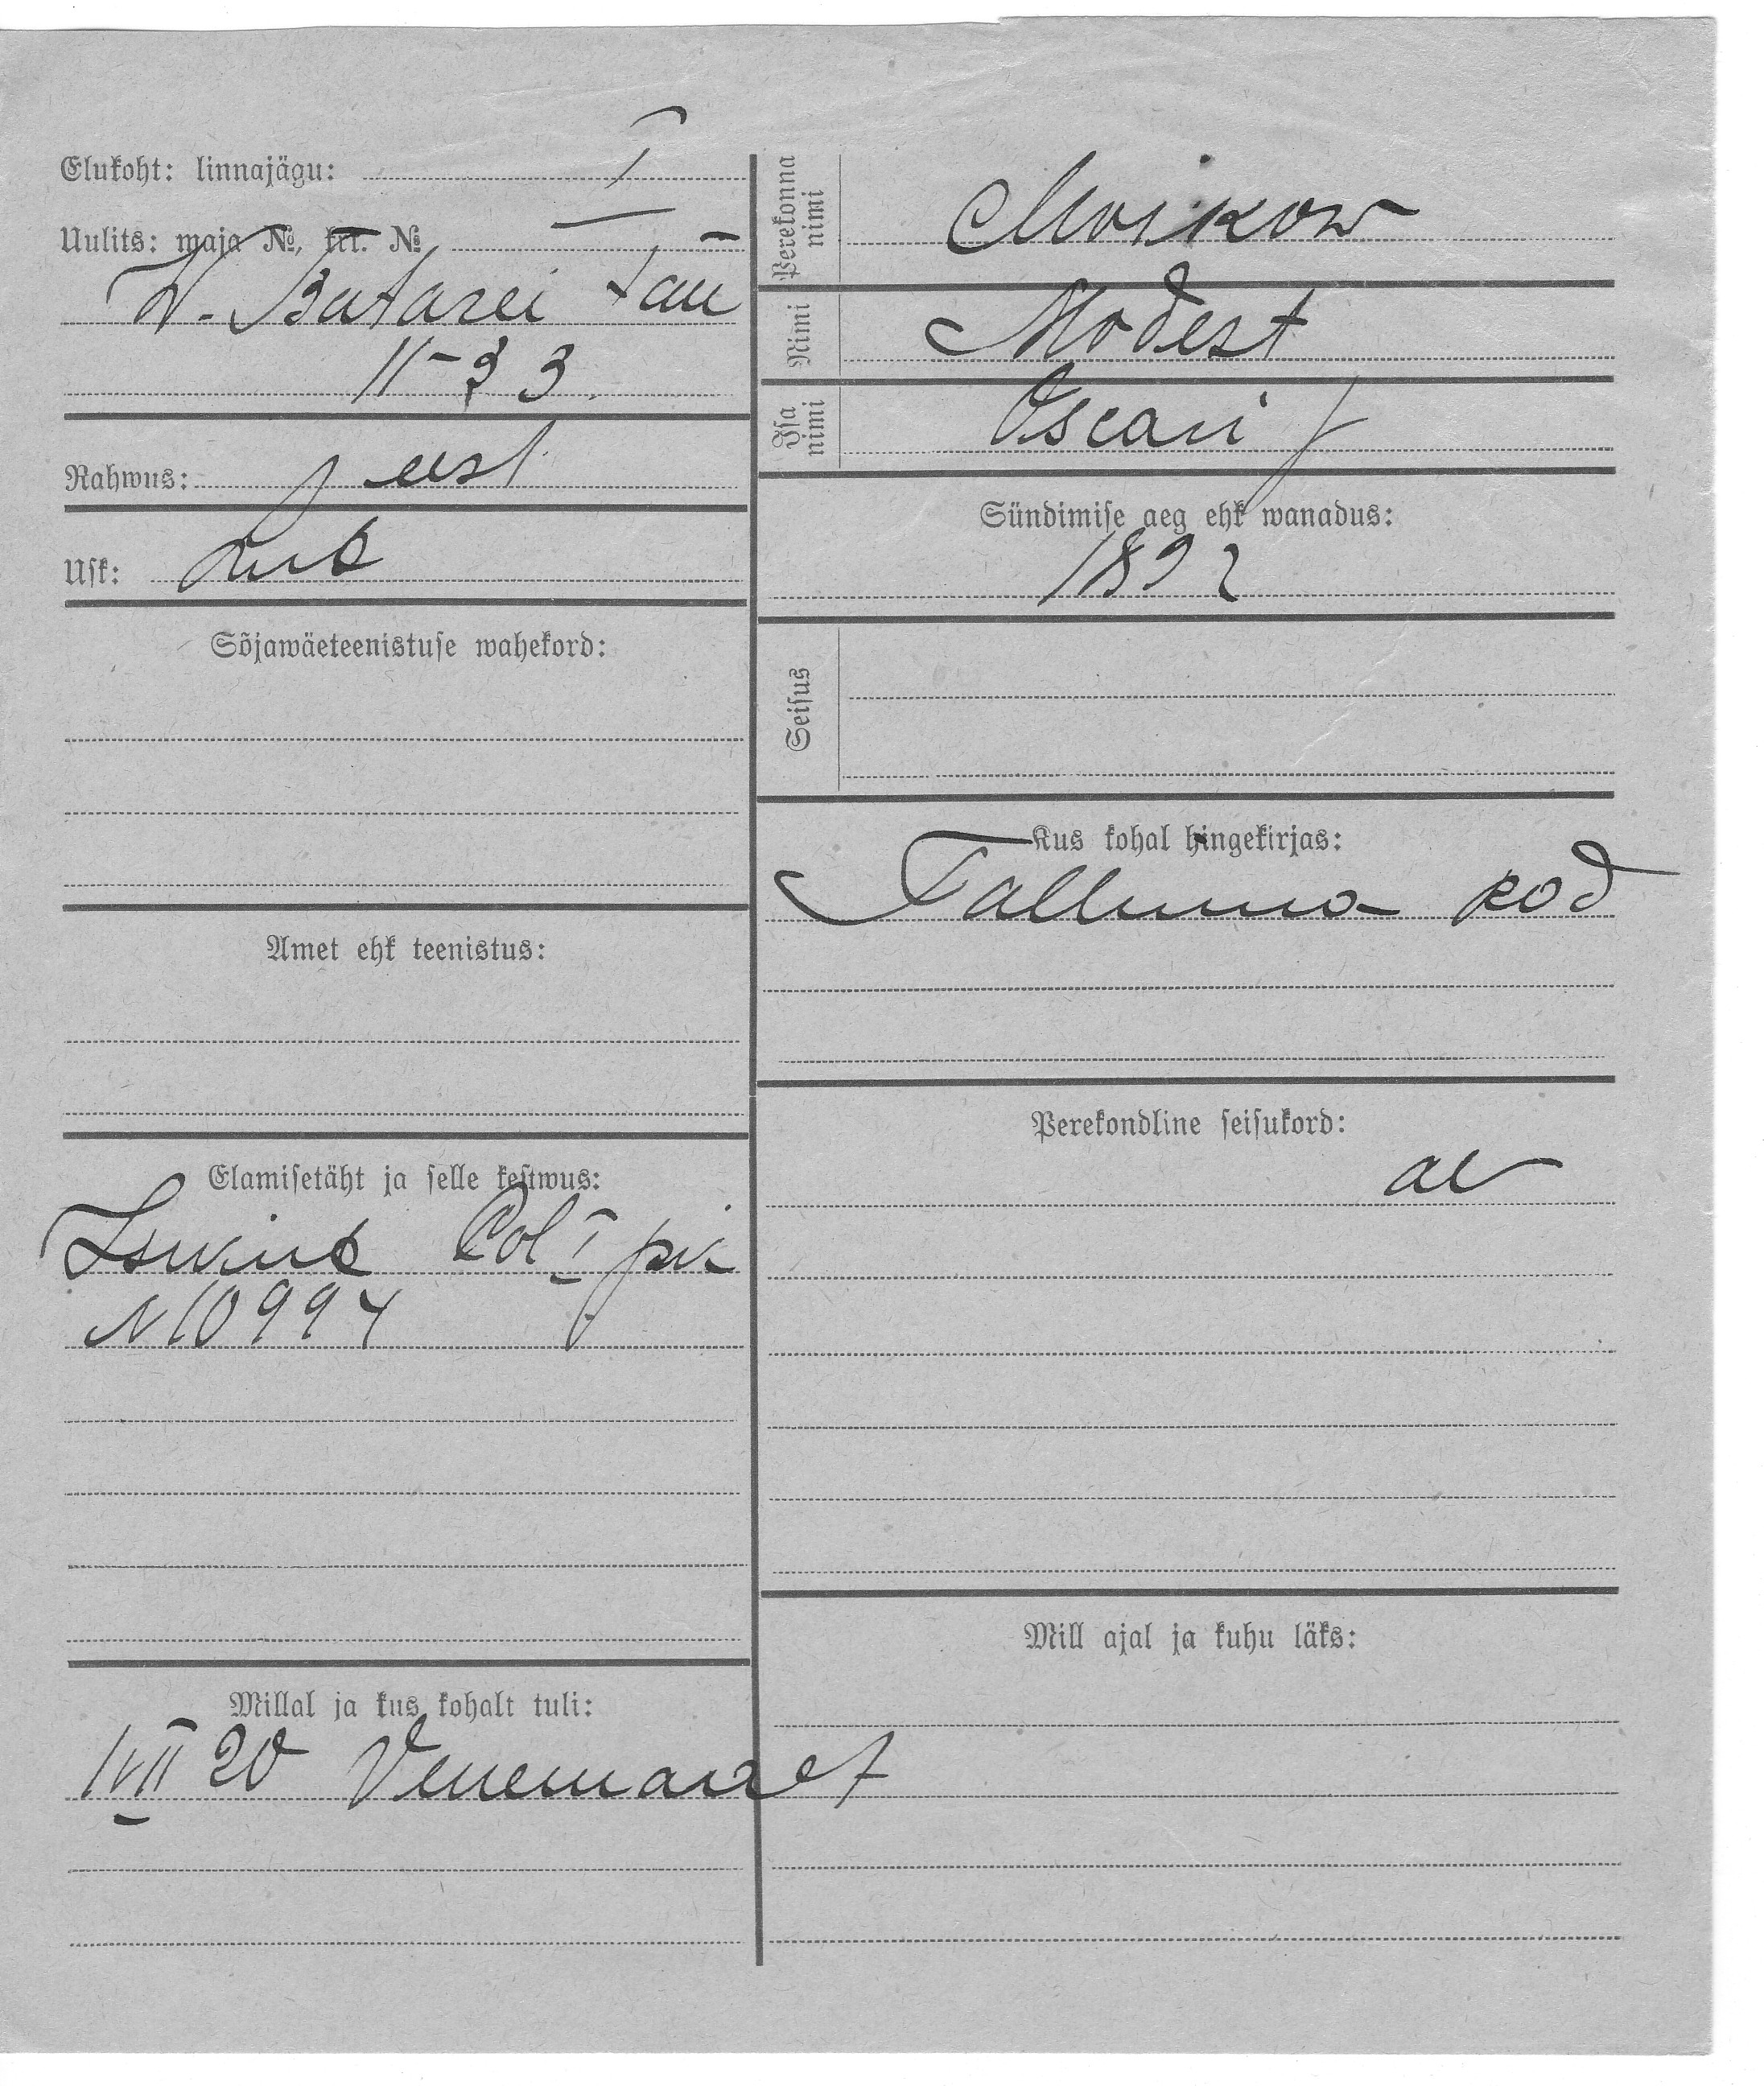 Elukoht: linnajägu: I
Uulits: maja №, krt. №
W. Batarei tän
11-33.
Rahwus: eest
Usk: Lut
Sõjawäeteenistuse wahekord:
Amet ehk teenistus:
Elamisetäht ja selle kestwus:
Pol I
N 10994
Millal ja kus kohalt tuli:
20 Venemaalt
Perekonna nimi
Moikow
Nimi Modest
Isa nimi Oscari
Sündimise aeg ehk wanadus:
1892
Seisus
Kus kohal hingekirjas:
Tallinna kod
Perekondline seisukord:
Mill ajal ja kuhu läks: